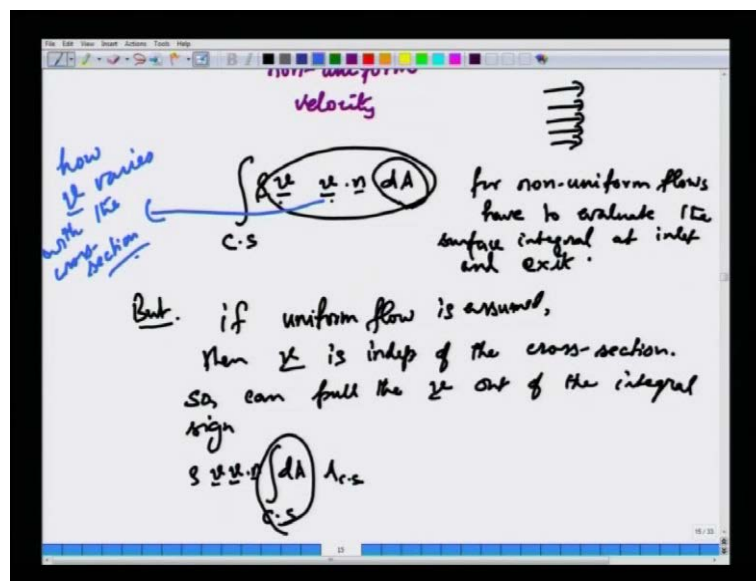 File Edit View Insert Actions Tools Help
non-uniform
velocity
how
v varies
with the
cross-
section
∫ ρ v v · n dA
C.S
for non-uniform flows
have to evaluate the
surface integral at inlet
and exit.
But. if uniform flow is assumed,
then v is indep of the cross-section.
so, can pull the v out of the integral
sign
ρ v v · n ∫ dA A c.s
C.S
15 / 33
15